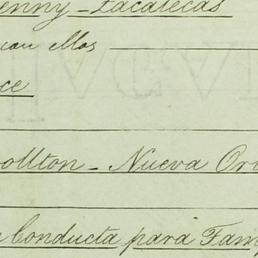 enny - Zacatecas
uan Mos
ce
ollton - Nueva Or
Conducta para Tam